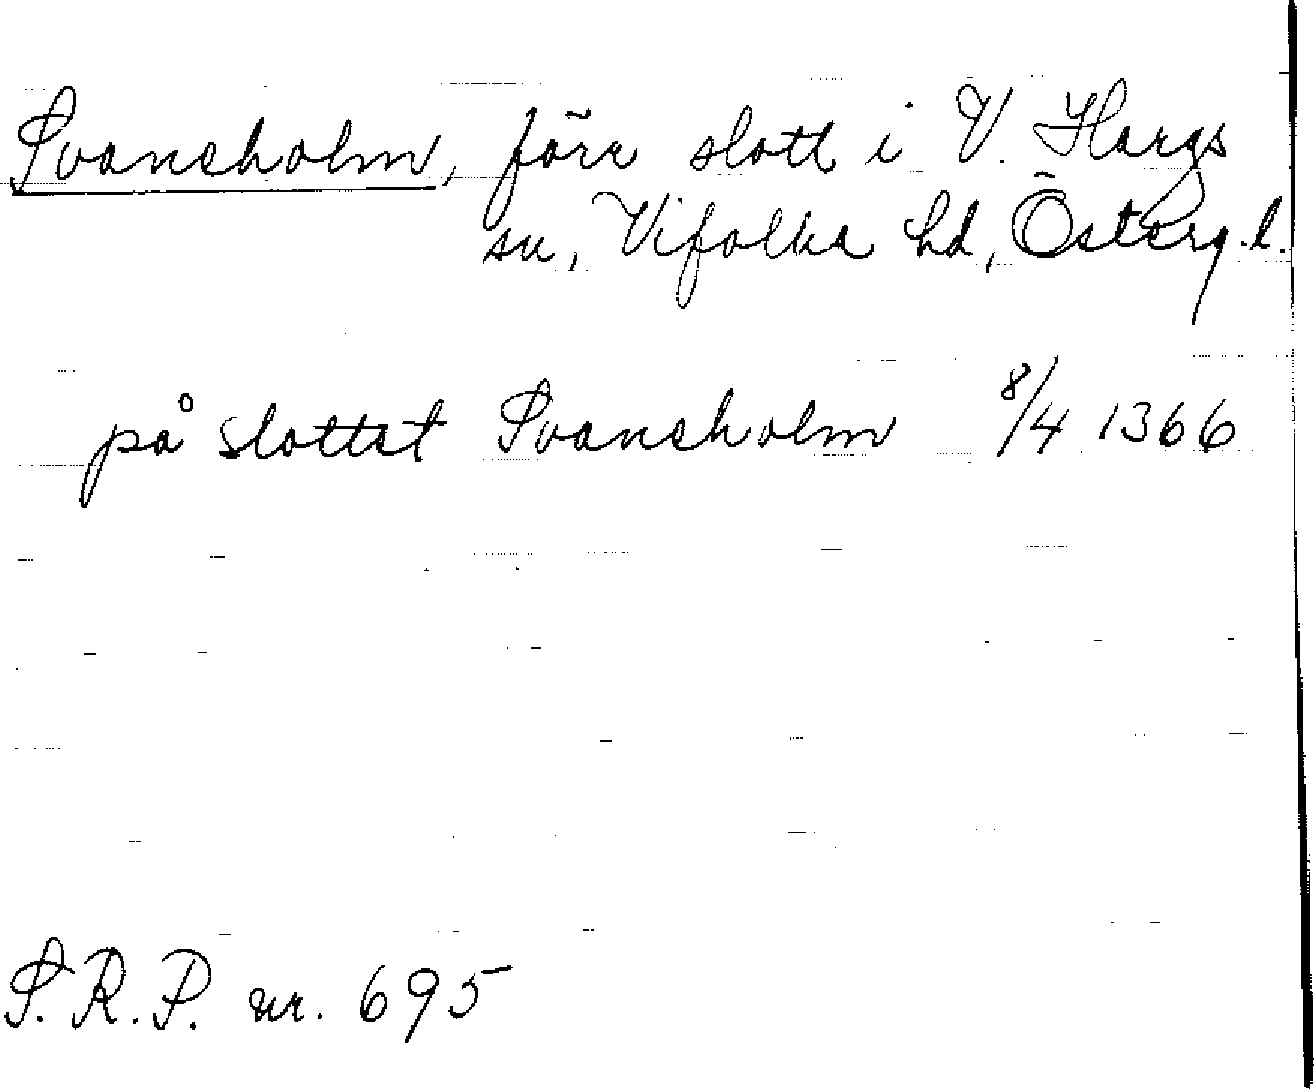 Svaneholm, förr slott i V. Hargs
sn, Vifolka hd, Österg. l.
på slottet Svaneholm 8/4 1366
S.R.P. nr. 695